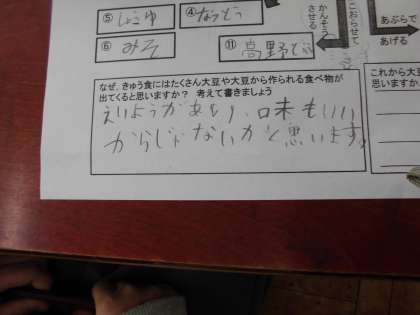 ⑤ しょうゆ
④ なっとう
かんそうさせる
こおらせて
あぶらで
あげる
⑥ みそ
⑪ 高野どうふ
なぜ、きゅう食にはたくさん大豆や大豆から作られる食べ物が
出てくると思いますか？ 考えて書きましょう
えいようがあり、口味もいい
からじゃないかと思います。
これから大豆
思いますか